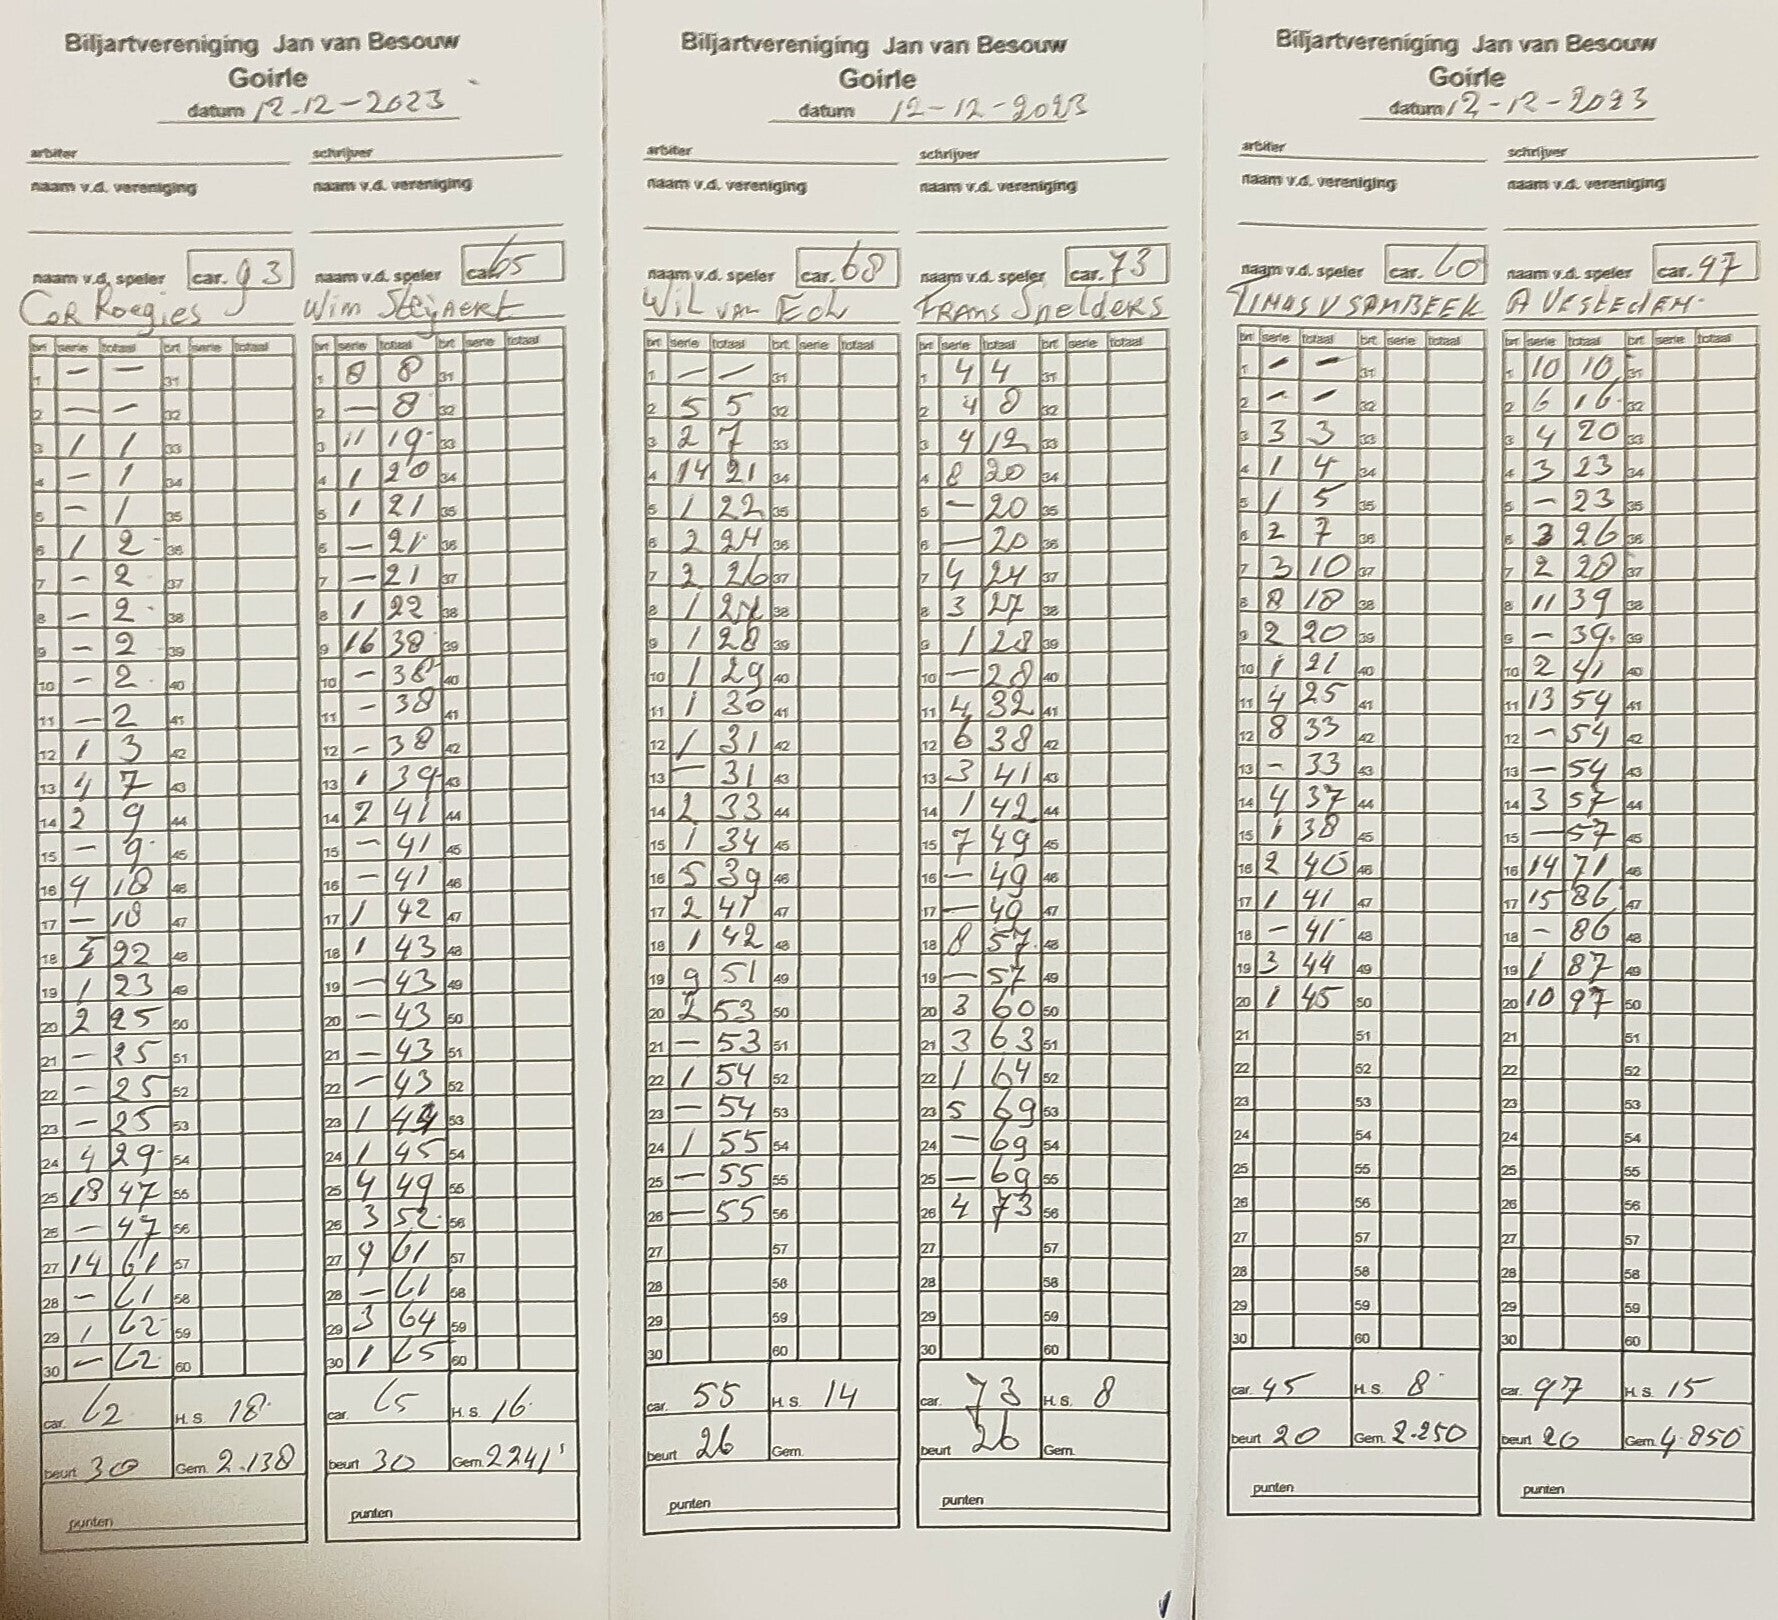 Biljartvereniging Jan van Besouw
Goirle
datum 12-12-2023
arbiter schrijver
naam v.d. vereniging naam v.d. vereniging
naam v.d. speler car. 93 naam v.d. speler car. 65
Cor Roegies Wim Steijaert
brt serie totaal brt. serie totaal brt serie totaal brt. serie totaal
1 — — 31 1 8 8 31
2 — — 32 2 — 8 32
3 1 1 33 3 11 19 33
4 — 1 34 4 1 20 34
5 — 1 35 5 1 21 35
6 1 2 36 6 — 21 36
7 — 2 37 7 — 21 37
8 — 2 38 8 1 22 38
9 — 2 39 9 16 38 39
10 — 2 40 10 — 38 40
11 — 2 41 11 — 38 41
12 1 3 42 12 — 38 42
13 4 7 43 13 1 39 43
14 2 9 44 14 2 41 44
15 — 9 45 15 — 41 45
16 9 18 46 16 — 41 46
17 — 18 47 17 1 42 47
18 22 48 18 1 43 48
19 1 23 49 19 — 43 49
20 2 25 50 20 — 43 50
21 — 25 51 21 — 43 51
22 — 25 52 22 — 43 52
23 — 25 53 23 1 44 53
24 4 29 54 24 1 45 54
25 18 47 55 25 4 49 55
26 — 47 56 26 3 52 56
27 14 61 57 27 9 61 57
28 — 61 58 28 — 61 58
29 1 62 59 29 3 64 59
30 — 62 60 30 1 65 60
car. 62 H.S. 18 car. 65 H.S. 16
beurt 30 Gem. 2.138 beurt 30 Gem. 2241
punten punten
Biljartvereniging Jan van Besouw
Goirle
datum 12-12-2023
arbiter schrijver
naam v.d. vereniging naam v.d. vereniging
naam v.d. speler car. 68 naam v.d. speler car. 73
Wil van Eck Frans Snelders
brt serie totaal brt. serie totaal brt serie totaal brt. serie totaal
1 — — 31 1 4 4 31
2 5 5 32 2 4 8 32
3 2 7 33 3 4 12 33
4 14 21 34 4 8 20 34
5 1 22 35 5 — 20 35
6 2 24 36 6 — 20 36
7 2 26 37 7 4 24 37
8 1 38 8 3 27 38
9 1 28 39 9 1 28 39
10 1 29 40 10 — 28 40
11 1 30 41 11 4 32 41
12 1 31 42 12 6 38 42
13 — 31 43 13 3 41 43
14 2 33 44 14 1 42 44
15 1 34 45 15 7 49 45
16 5 39 46 16 — 49 46
17 2 41 47 17 — 49 47
18 1 42 48 18 8 57 48
19 9 51 49 19 — 57 49
20 2 53 50 20 3 60 50
21 — 53 51 21 3 63 51
22 1 54 52 22 1 64 52
23 — 54 53 23 5 69 53
24 1 55 54 24 — 69 54
25 — 55 55 25 — 69 55
26 — 55 56 26 4 73 56
27 57 27 57
28 58 28 58
29 59 29 59
30 60 30 60
car. 55 H.S. 14 car. 73 H.S. 8
beurt 26 Gem. beurt 26 Gem.
punten punten
Biljartvereniging Jan van Besouw
Goirle
datum 12-12-2023
arbiter schrijver
naam v.d. vereniging naam v.d. vereniging
naam v.d. speler car. 60 naam v.d. speler car. 97
TINUS V SAMBEEK A VESTEDEN
brt serie totaal brt. serie totaal brt serie totaal brt. serie totaal
1 — — 31 1 10 10 31
2 — — 32 2 6 16 32
3 3 3 33 3 4 20 33
4 1 4 34 4 3 23 34
5 1 5 35 5 — 23 35
6 2 7 36 6 3 26 36
7 3 10 37 7 2 28 37
8 8 18 38 8 11 39 38
9 2 20 39 9 — 39 39
10 1 21 40 10 2 41 40
11 4 25 41 11 13 54 41
12 8 33 42 12 — 54 42
13 — 33 43 13 — 54 43
14 4 37 44 14 3 57 44
15 1 38 45 15 — 57 45
16 2 40 46 16 14 71 46
17 1 41 47 17 15 86 47
18 — 41 48 18 — 86 48
19 3 44 49 19 1 87 49
20 1 45 50 20 10 97 50
21 51 21 51
22 52 22 52
23 53 23 53
24 54 24 54
25 55 25 55
26 56 26 56
27 57 27 57
28 58 28 58
29 59 29 59
30 60 30 60
car. 45 H.S. 8 car. 97 H.S. 15
beurt 20 Gem. 2.250 beurt 20 Gem. 4.850
punten punten